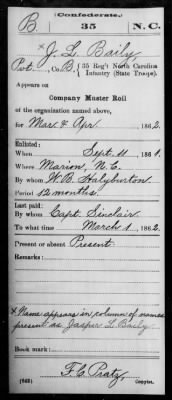 (Confederate.)
B 35 N.C.
x J. L. Baily
Pvt., Co. B, { 35 Reg't North Carolina
Infantry (State Troops).
Appears on
Company Muster Roll
of the organization named above,
for Mar & Apr, 1862.
Enlisted:
When Sept. 11, 1861.
Where Marion, N.C.
By whom W. B. Halyburton
Period 12 months.
Last paid:
By whom Capt. Sinclair
To what time March 1, 1862.
Present or absent Present
Remarks:
x Name appears in column of names
present as Jasper L Baily
Book mark:
(642) F. C. Pratz,
Copyist.